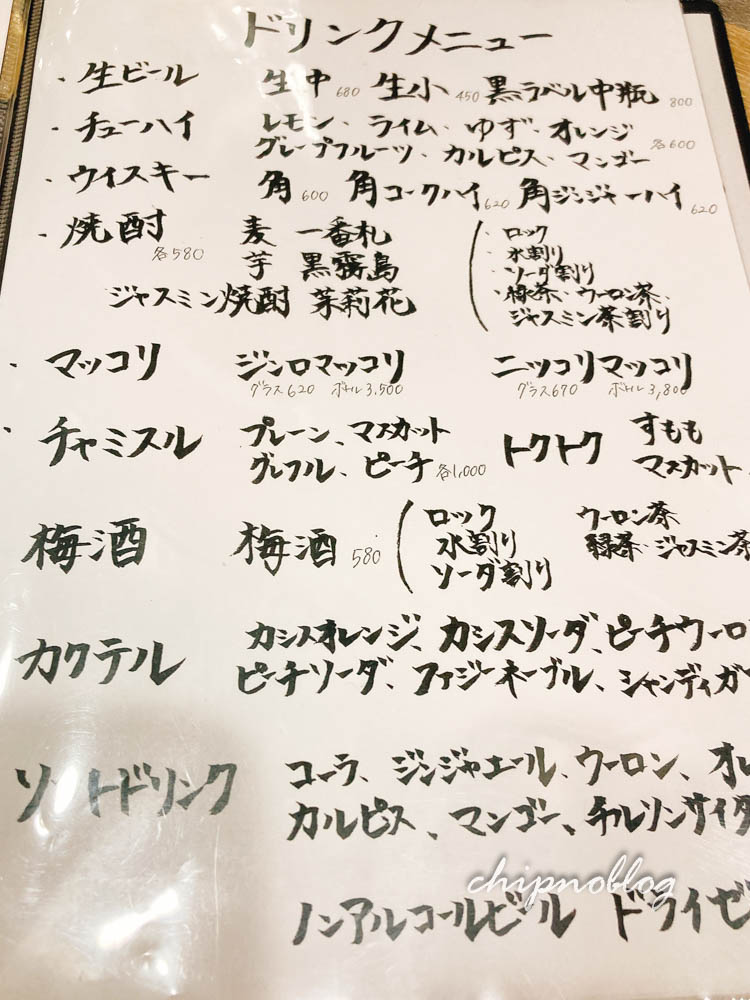 ドリンクメニュー
・生ビール 生中 680 生小 450 黒ラベル中瓶 800
・チューハイ レモン、ライム、ゆず、オレンジ
グレープフルーツ、カルピス、マンゴー 各600
・ウイスキー 角 600 角コークハイ 620 角ジンジャーハイ 620
・焼酎 各580 麦 一番札
芋 黒霧島
ジャスミン焼酎 茉莉花
・ロック
・水割り
・ソーダ割り
・緑茶、ウーロン茶、
ジャスミン茶割り
・マッコリ ジンロマッコリ ニッコリマッコリ
グラス620 ボトル3,500 グラス670 ボトル3,800
・チャミスル プレーン、マスカット
グレフル、ピーチ 各1,000
トクトク すもも
マスカット
梅酒 梅酒 580
ロック ウーロン茶
水割り 緑茶・ジャスミン茶
ソーダ割り
カクテル カシスオレンジ、カシスソーダ、ピーチウーロ
ピーチソーダ、ファジーネーブル、シャンディガ
ソフトドリンク コーラ、ジンジャエール、ウーロン、オレ
カルピス、マンゴー、チルソンサイダ
ノンアルコールビール ドライゼ
chipnoblog